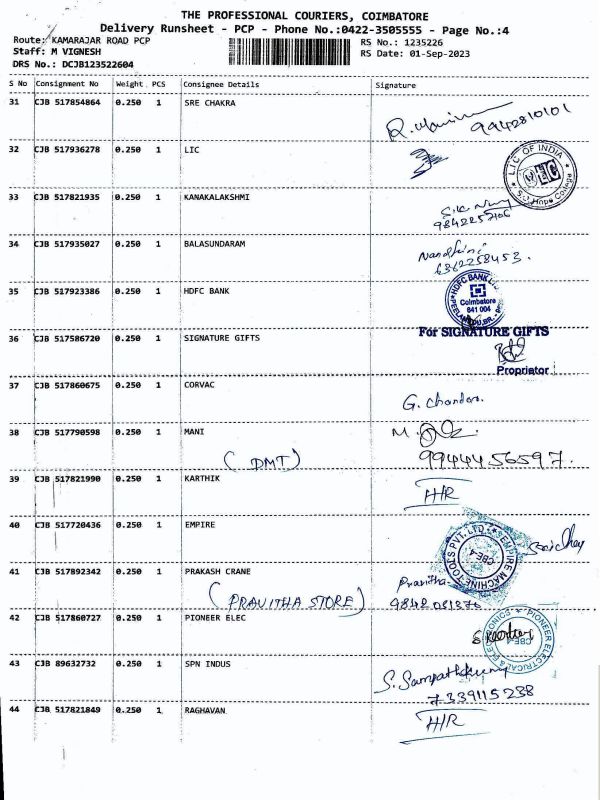 THE PROFESSIONAL COURIERS, COIMBATORE
Delivery Runsheet - PCP - Phone No.:0422-3505555 - Page No.:4
Route: KAMARAJAR ROAD PCP RS No.: 1235226
Staff: M VIGNESH RS Date: 01-Sep-2023
DRS No.: DCJB123522604
S No Consignment No Weight PCS Consignee Details Signature
31 CJB 517854864 0.250 1 SRE CHAKRA
9942810101
32 CJB 517936278 0.250 1 LIC
LIC OF INDIA
S.J. Hope College
33 CJB 517821935 0.250 1 KANAKALAKSHMI
34 CJB 517935027 0.250 1 BALASUNDARAM
Nandhini
6362258453.
35 CJB 517923386 0.250 1 HDFC BANK
HDFC BANK
Coimbatore
641 004
36 CJB 517586720 0.250 1 SIGNATURE GIFTS
For SIGNATURE GIFTS
Proprietor
37 CJB 517860675 0.250 1 CORVAC
G. Chandon.
38 CJB 517790598 0.250 1 MANI
M.
(DMT) 9944456597.
39 CJB 517821990 0.250 1 KARTHIK
H/R
40 CJB 517720436 0.250 1 EMPIRE
EMPIRE MACHINE TOOLS PVT. LTD.
CBE-4
41 CJB 517892342 0.250 1 PRAKASH CRANE
Pravitha
(PRAVITHA STORE) 9842081876
42 CJB 517860727 0.250 1 PIONEER ELEC
PIONEER ELECTRICAL & ELECTRONICS
CBE-4
43 CJB 89632732 0.250 1 SPN INDUS
S. Sampathkumar
7339115238
44 CJB 517821849 0.250 1 RAGHAVAN
H/R